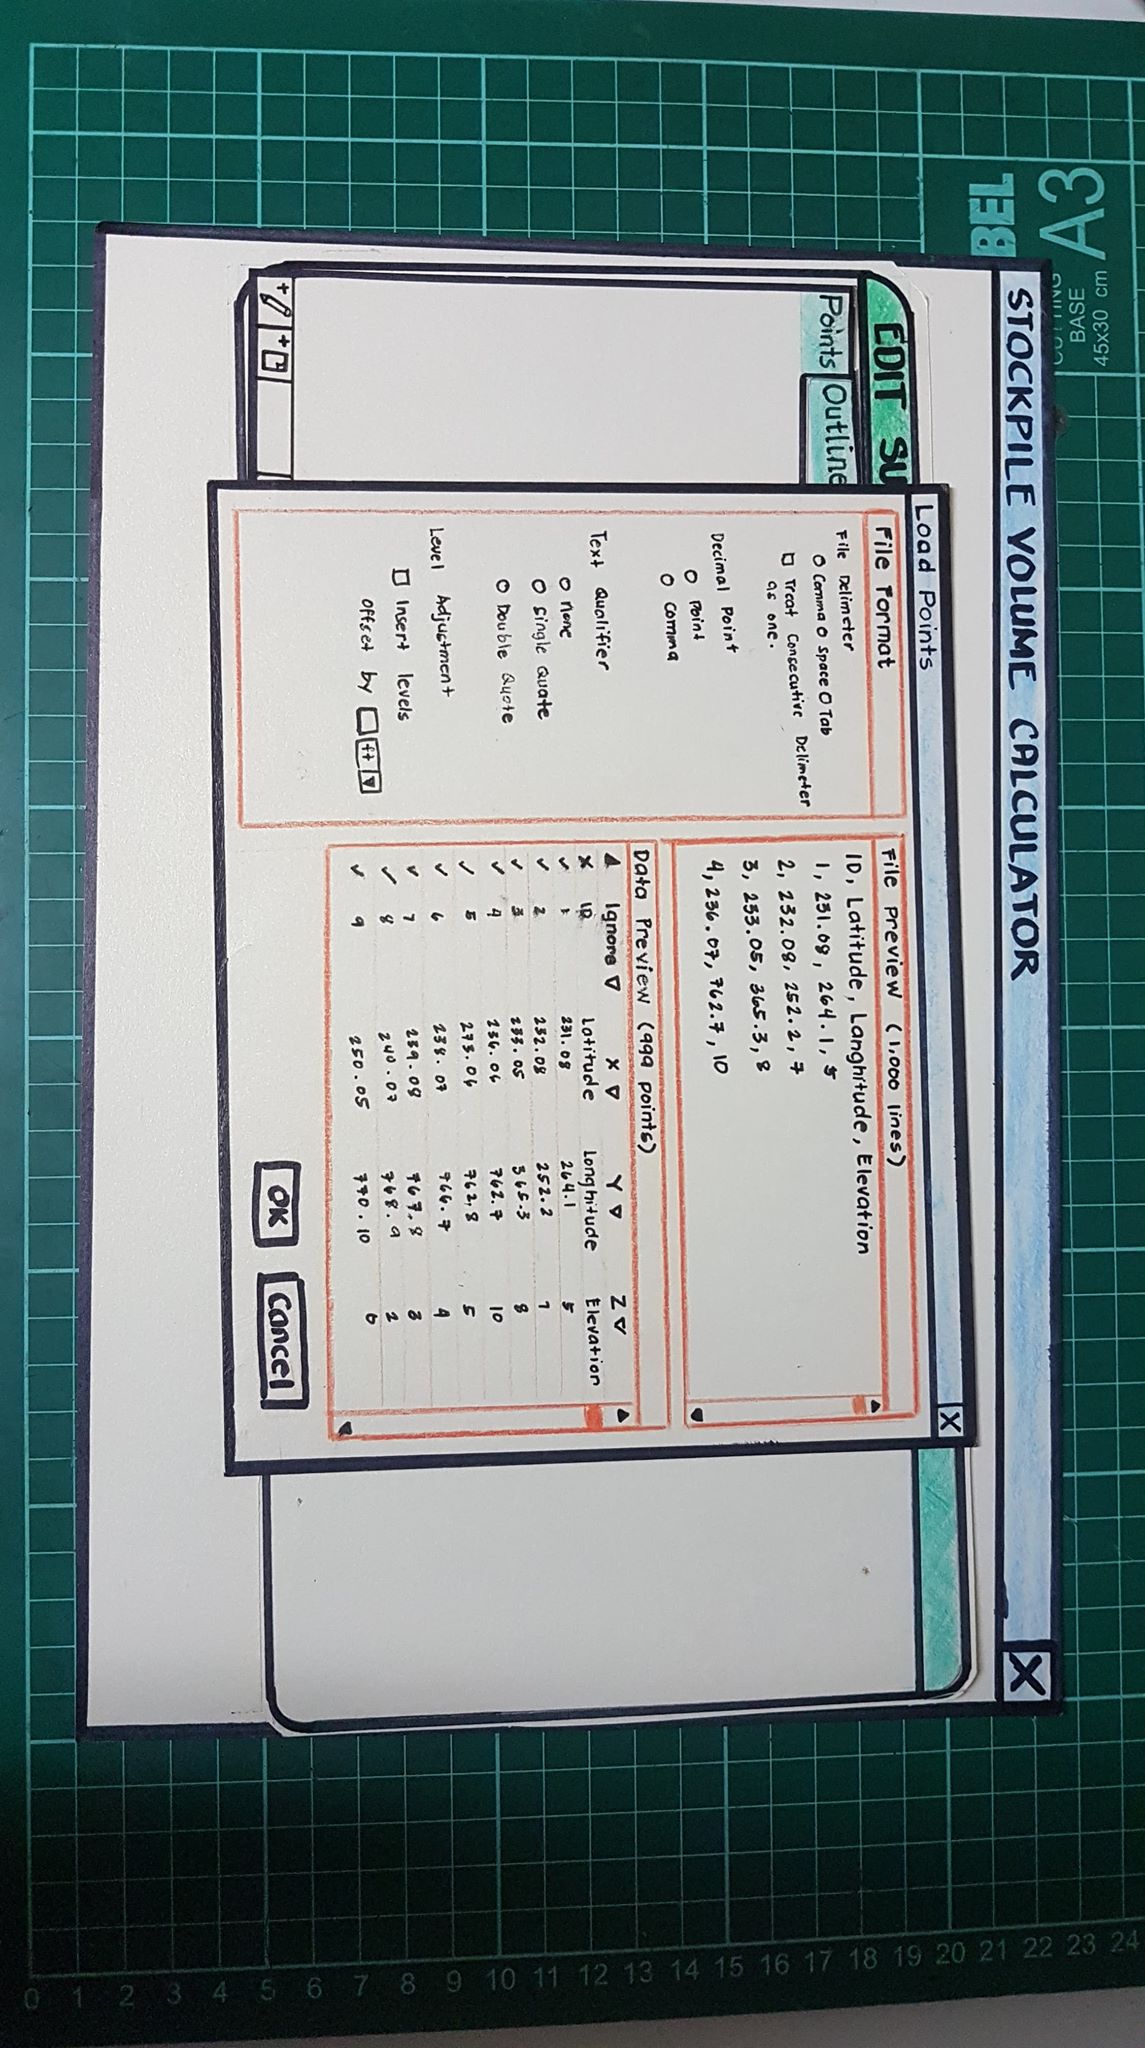 STOCKPILE VOLUME CALCULATOR X
EDIT SU
Points Outline
Load Points X
File Format
File Delimeter
Comma Space Tab
Treat Consecutive Delimeter
as one.
Decimal Point
Point
Comma
Text Qualifier
None
Single Quate
Double Quote
Level Adjustment
Insert levels
offset by ft
File Preview (1,000 lines)
ID, Latitude, Langhitude, Elevation
1, 231.08, 264.1, 5
2, 232.08, 252.2, 7
3, 233.05, 365.3, 8
4, 236.07, 762.7, 10
Data Preview (999 points)
Ignore X Y Z
X ID Latitude Longhitude Elevation
✓ 1 231.08 264.1 5
✓ 2 232.08 252.2 7
✓ 3 233.05 365.3 8
✓ 4 236.06 762.7 10
✓ 5 273.06 762.8 5
✓ 6 238.07 766.7 4
✓ 7 239.08 767.8 3
✓ 8 240.07 768.9 2
✓ 9 250.05 770.10 6
OK Cancel
BEL
A3
BASE
45x30 cm
0 1 2 3 4 5 6 7 8 9 10 11 12 13 14 15 16 17 18 19 20 21 22 23 24